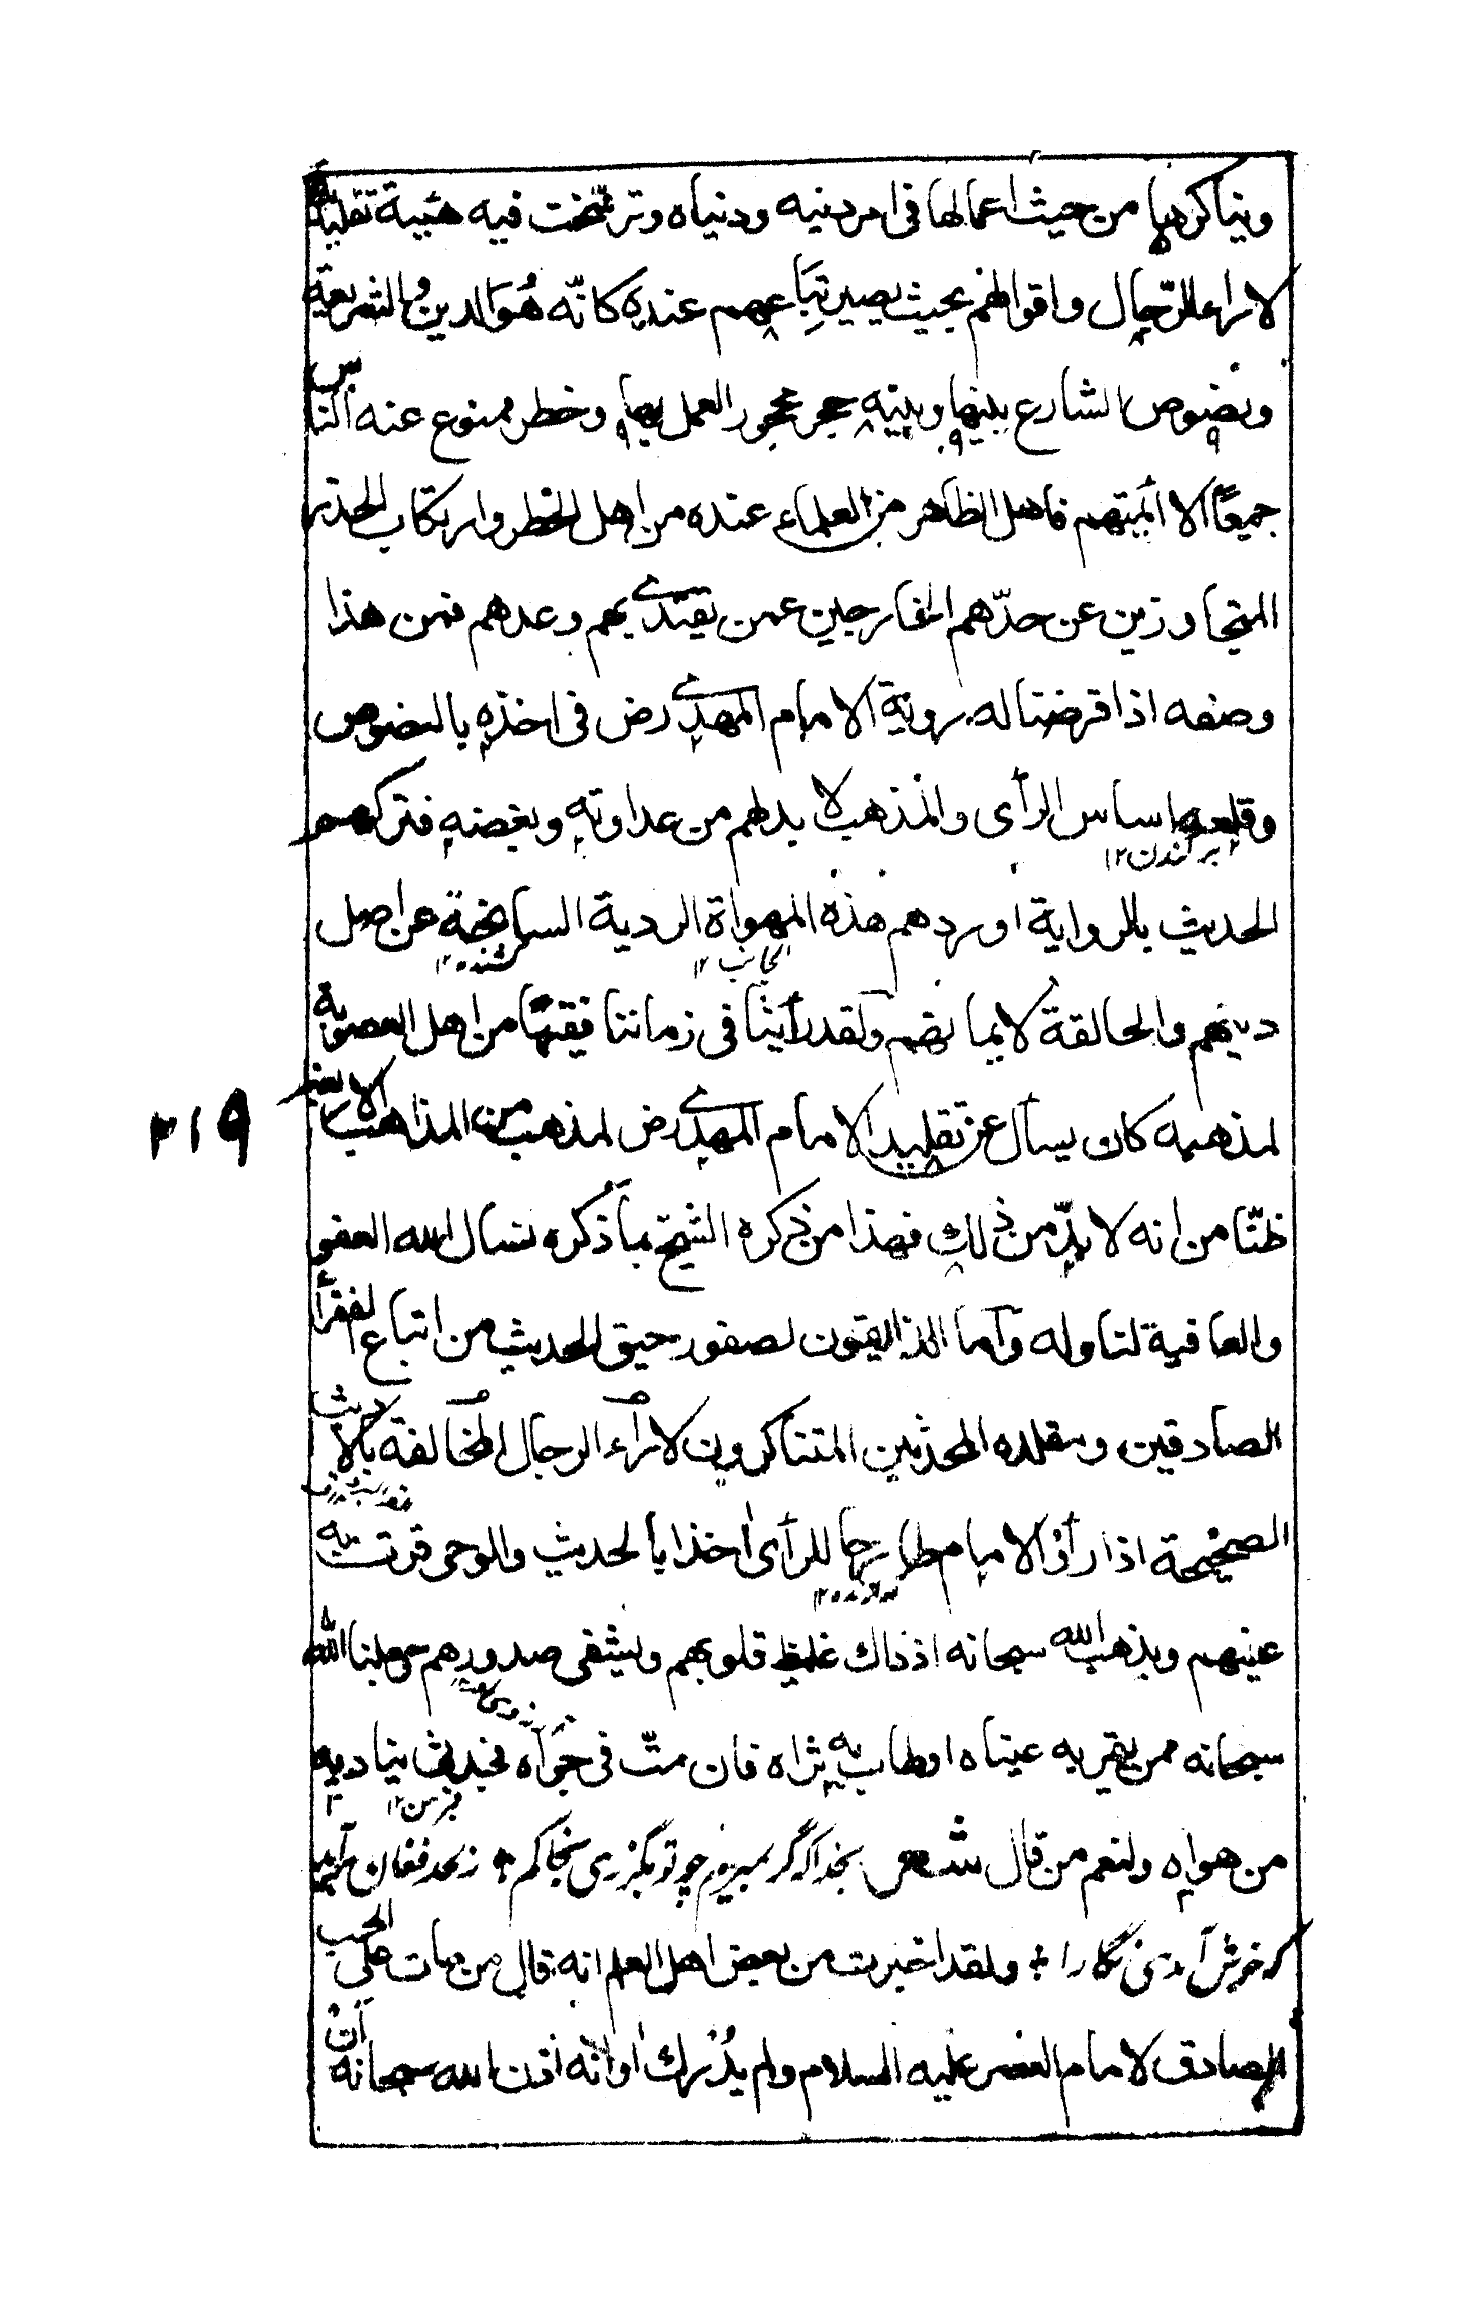 ويناكرها من حيث اعمالها فى امر دينه ودنياه وترسّخت فيه هيبة تقليد
لاراء الرّجال واقوالهم بحيث يصير تباعهم عنده كانّه هُوَ الدين والشريعة
ونصوص الشارع بينها وبينه حجر محجور العمل بها وخطر ممنوع عنه الناس
جميعًا الا ائمتهم فاهل الظاهر من العلماء عنده من اهل الخطر وارتكاب الحذر
المتجاوزين عن حدّهم الخارجين عمن يقتدى بهم وعدهم فمن هذا
وصفه اذا فرضنا له روية الامام المهدى رض فى اخذه بالنصوص
وقلعه اساس الرأى والمذهب لا بد لهم من عداوته وبغضه فتركهم
بركندن ١٢
الحديث بالرواية اوردهم هذه المهواة الردية السالخة عن اصل
دينهم والحالقة لايمانهم ولقد رأينا فى زماننا فقيهًا من اهل العصوبة
لمذهبه كان يسأل عن تقليد الامام المهدى رض لمذهب من المذاهب الاربعة
٢١٩
ظنّا من انه لا بدّ من ذلك فهذا من ذكره الشيخ بما ذكره نسال الله العفو
والعافية لنا وله وآما الذائقون لصفو رحيق الحديث من اتباع الفقرأ
الصادقين ومقلده المحدثين المتناكرون لاراء الرجال المخالفة بالاحاديث
الصحيحة اذا رأوُا الامام طارحا للرأى اخذا بالحديث والوحى قرت به
عينهم ويذهب الله سبحانه اذ ذاك غليظ قلوبهم ويشفى صدورهم جعلنا الله
سبحانه ممن يقر به عيناه اوطاب به ثراه فان متّ فى جوآه ينادیه
من هواه ولنعم من قال شعر بخدا كه گر بميرم چو تو بگذرى بخاكم ÷ ز لحد فغان برآيد
كه خوش آمدى نگارا ÷ ولقد اخبرت من بعض اهل العلم انه قال من مات على الحب
الصادق لامام العصر عليه السلام ولم يُدْرك اوانه اذن الله سبحانه أنْ